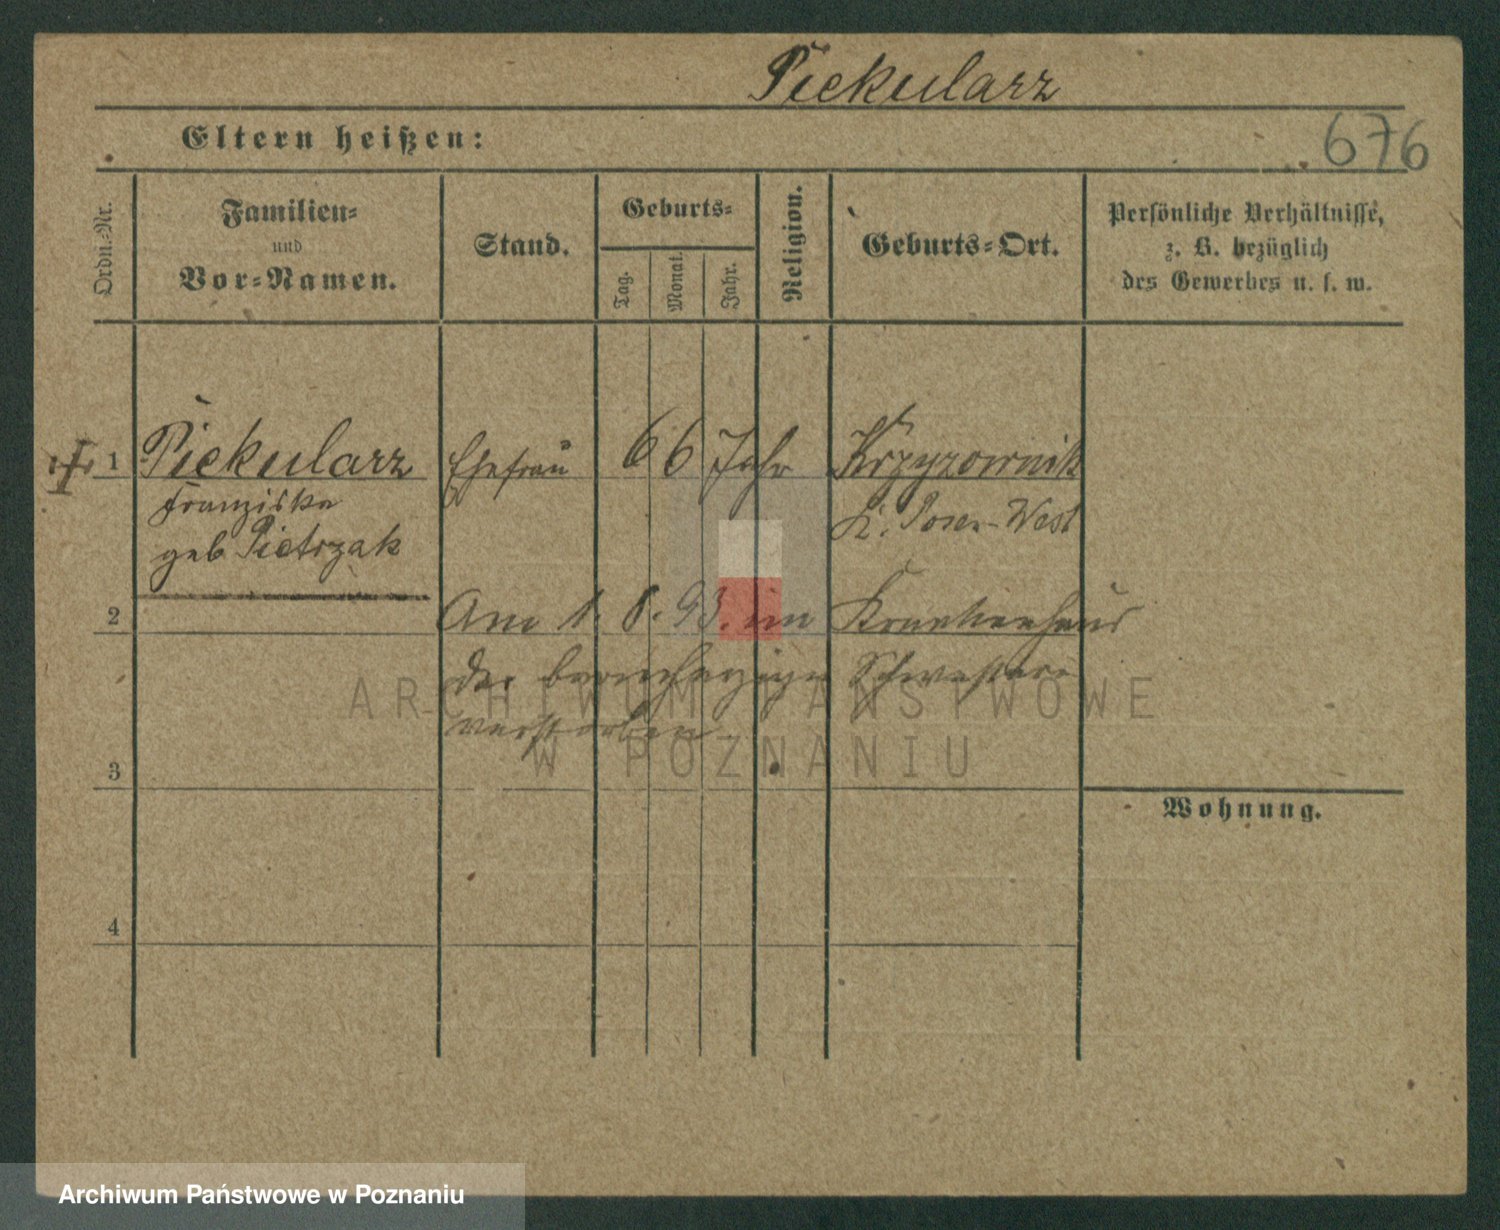 Piekularz
Eltern heißen:
676
Ordn.-Nr.
Familien-
und
Vor-Namen.
Stand.
Geburts-
Tag.
Monat.
Jahr.
Religion.
Geburts-Ort.
Persönliche Verhältnisse,
z. B. bezüglich
des Gewerbes u. s. w.
1 Piekularz Ehefrau 66 Jahr Krzyzownik
Franziska
geb Pietrzak
K. Posen-West
2 Am 1. 8. 93. im Krankenhaus
der barmherzigen Schwestern
verstorben.
ARCHIWUM PAŃSTWOWE
W POZNANIU
3
Wohnung.
4
Archiwum Państwowe w Poznaniu